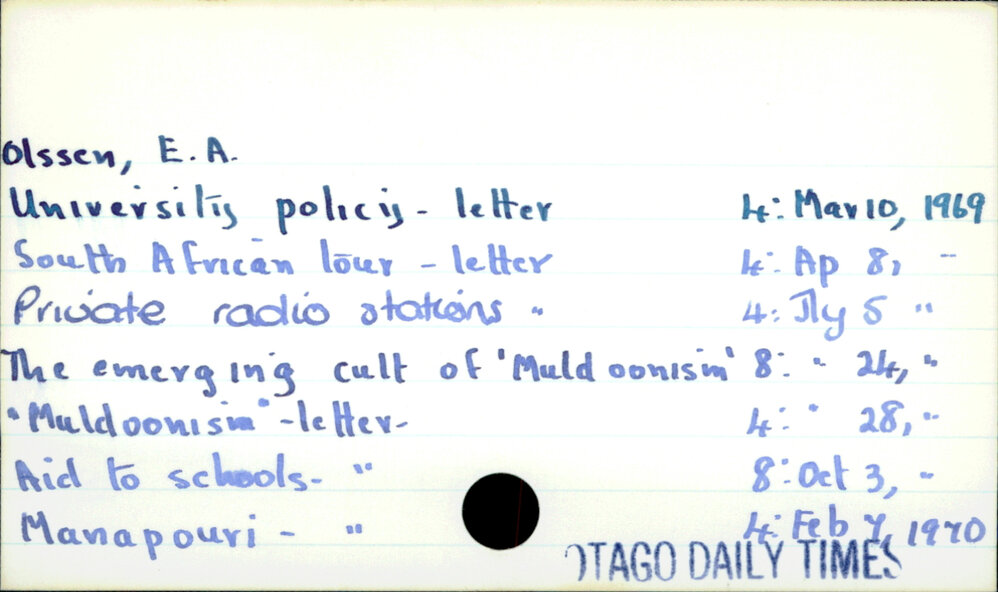 Olssen, E. A.
University policy - letter 4: Mar 10, 1969
South African tour - letter 4: Ap 8, "
Private radio stations " 4: Jly 5 "
The emerging cult of 'Muldoonism' 8: " 24, "
"Muldoonism" - letter - 4: " 28, "
Aid to schools - " 8: Oct 3, "
Manapouri - " 4: Feb 7, 1970
OTAGO DAILY TIMES